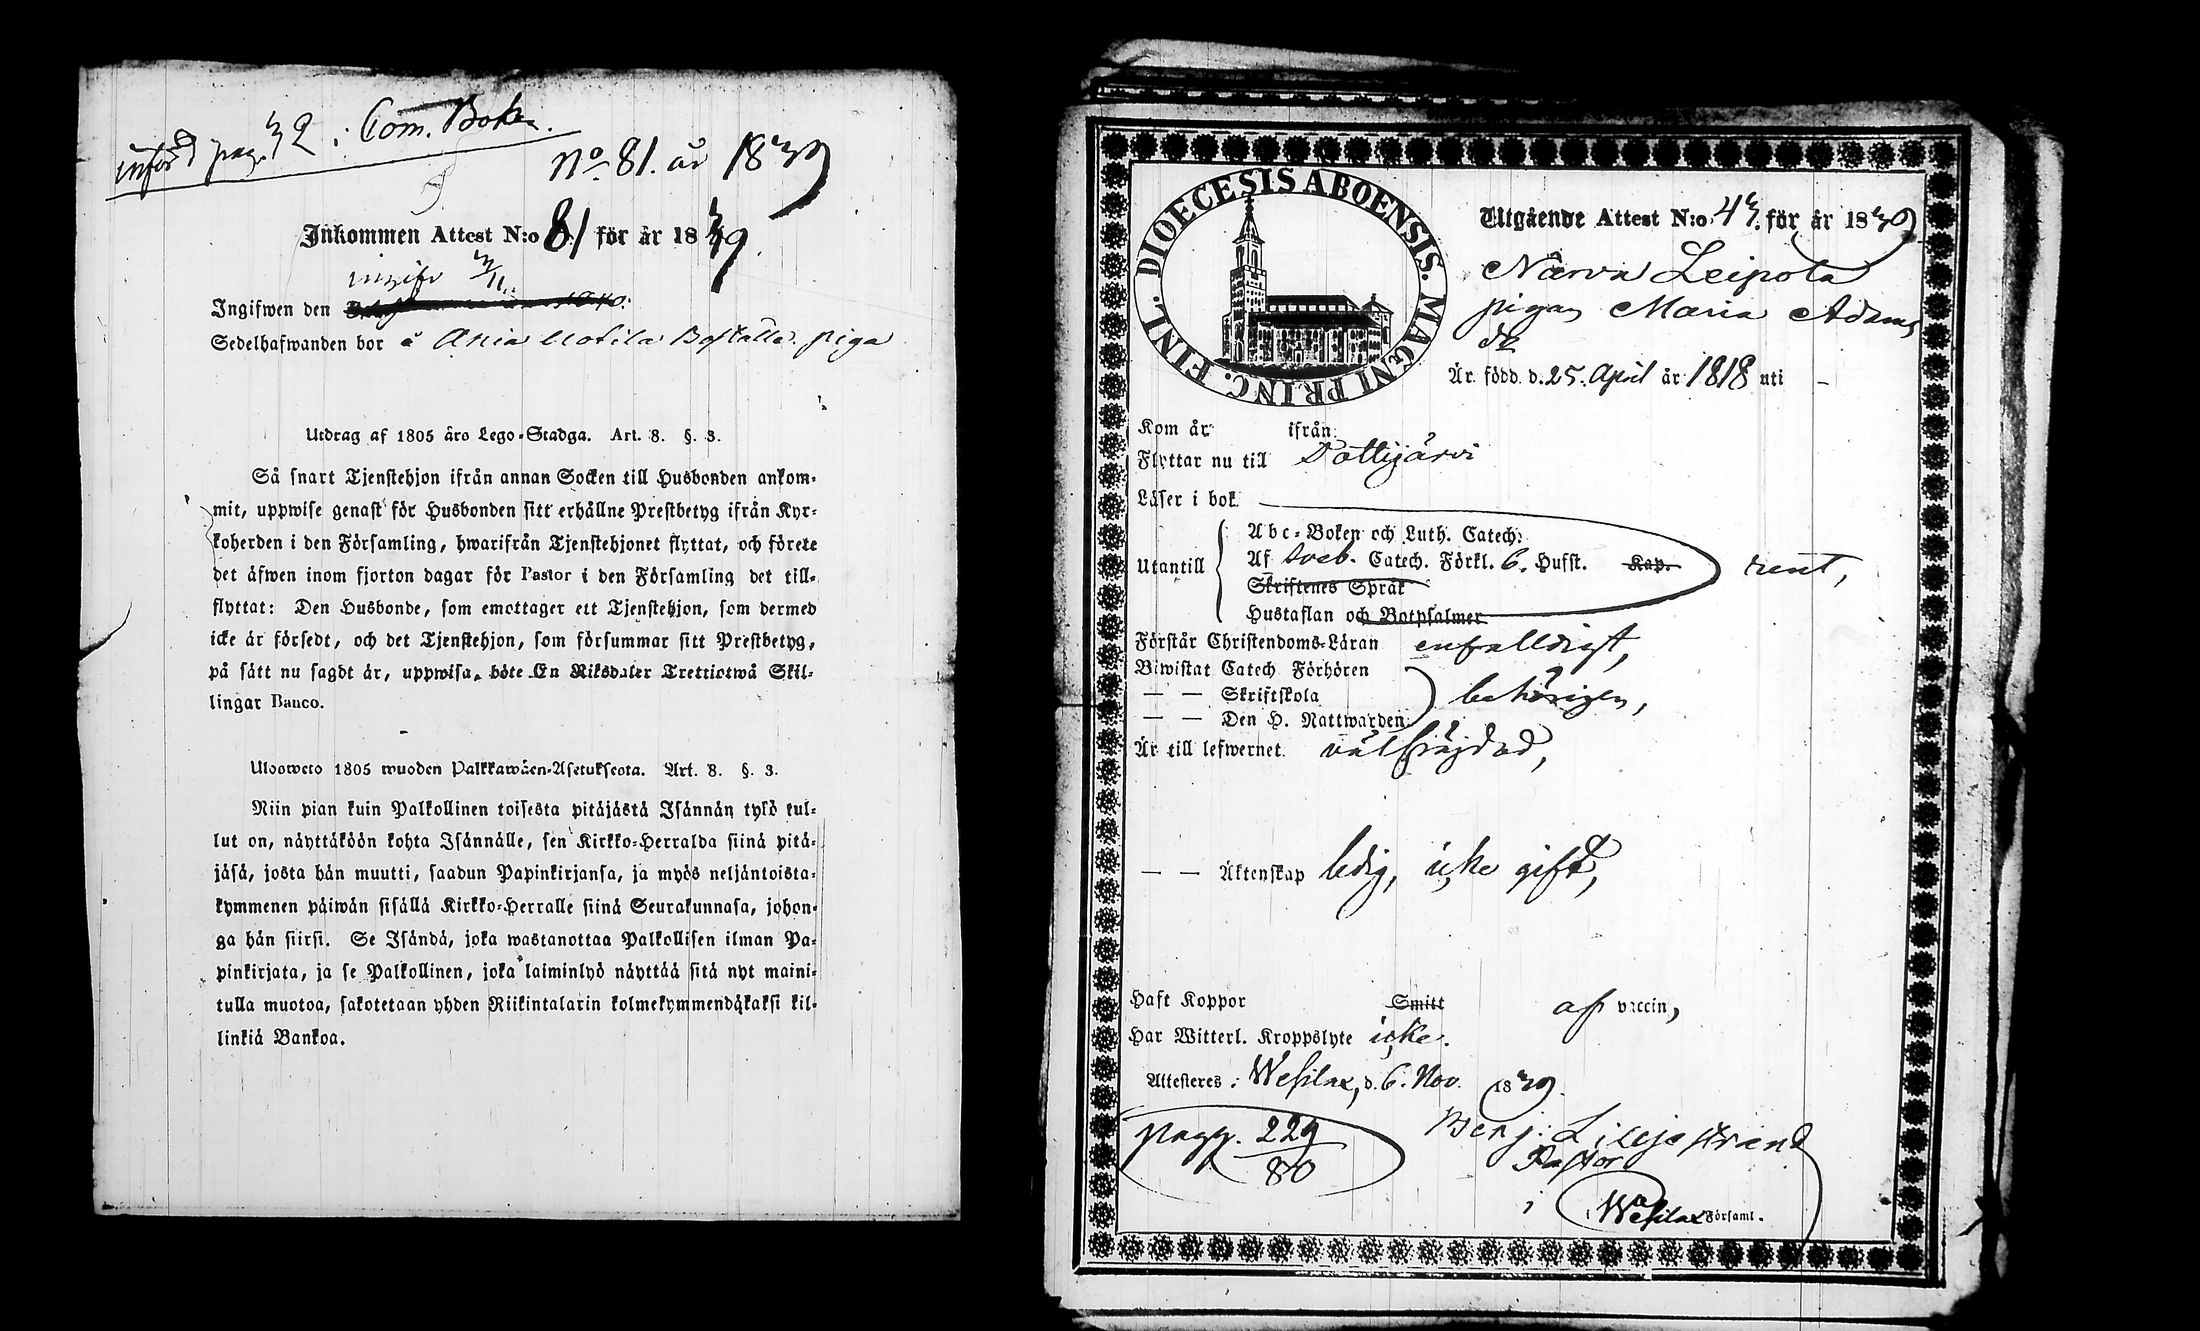 införd pag. 32 i Com. Boken.
No. 81. år 1839
Inkommen Attest N:o 81 för år 1839.
Ingifwen den
Sedelhafwanden bor å Ania Uotila Boställe. piga
Utdrag af 1805 års Lego-Stadga. Art. 8. §. 3.
Så snart Tjenstehjon ifrån annan Socken till Husbonden ankom-
mit, uppwise genast för Husbonden sitt erhållne Prestbetyg ifrån Kyr-
koherden i den Församling, hwarifrån Tjenstehjonet flyttat, och förete
det äfwen inom fjorton dagar för Pastor i den Församling det till-
flyttat: Den Husbonde, som emottager ett Tjenstehjon, som dermed
icke är försedt, och det Tjenstehjon, som försummar sitt Prestbetyg,
på sätt nu sagdt är, uppwisa, böte En Riksdaler Trettiotwå Skil-
lingar Banco.
Uloosweto 1805 wuoden Palkkawäen-Asetuksesta. Art. 8. §. 3.
Niin pian kuin Palkollinen toisesta pitäjästä Isännän tykö tul-
lut on, näyttäköön kohta Isännälle, sen Kirkko-Herralda siinä pitä-
jäsä, josta hän muutti, saadun Papinkirjansa, ja myös neljäntoista-
kymmenen päiwän sisällä Kirkko-Herralle siinä Seurakunnasa, johon-
ga hän siirsi. Se Isändä, joka wastanottaa Palkollisen ilman Pa-
pinkirjata, ja se Palkollinen, joka laiminlyö näyttää sitä nyt maini-
tulla muotoa, sakotetaan yhden Riikintalarin kolmekymmendäkaksi kil-
linkiä Bankoa.
DIOECESIS ABOENSIS. MAGNI PRINC. FINL.
Utgående Attest N:o 43. för år 1839
Narva Leipola
pigan Maria Adams
dr
Är född d. 25. April år 1818 uti –
Kom år ifrån
Flyttar nu till Tottijärvi
Läser i bok
Utantill
Abc-Boken och Luth. Catech:
Af Sveb. Catech. Förkl. 6. Hufst. Kap.
Skriftenes Språk
Hustaflan och Botpsalmer
rent,
Förstår Christendoms-Läran enfalldigt,
Biwistat Catech Förhören
— — Skriftskola
— — Den H. Nattwarden
behörigen,
Är till lefwernet välfräjdad,
— — Äktenskap ledig, icke gift,
Haft Koppor Smitt af vaccin,
Har Witterl. Kroppslyte icke.
Attesteres: Wesilax, d. 6. Nov. 1839.
pagg. 229
80
Benj: Liljestrand
Pastor
i Wesilax Församl.